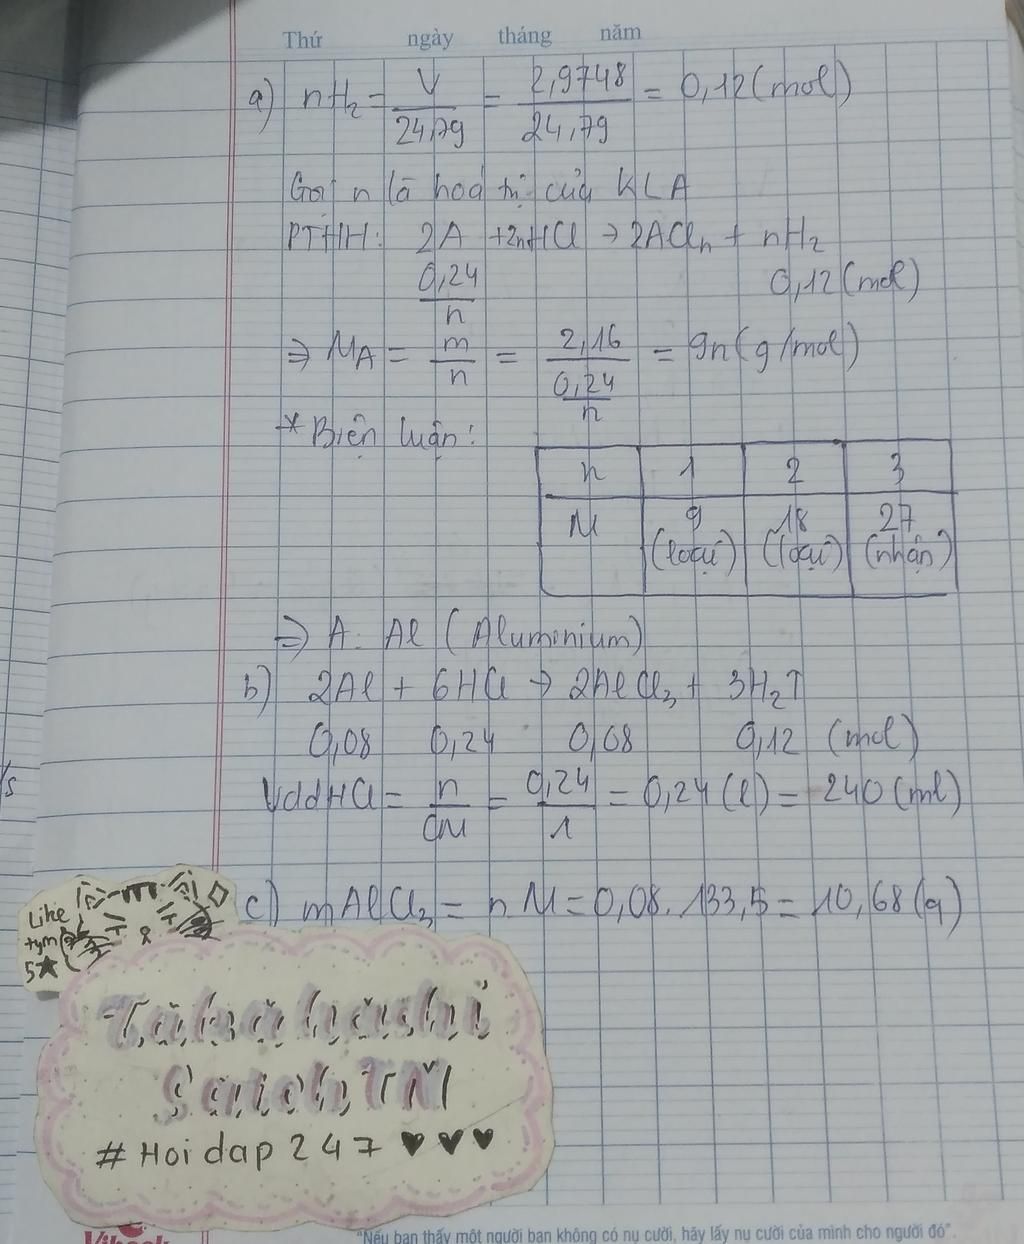 Thứ ngày tháng năm
a) nH₂ = V/24,79 = 2,9748/24,79 = 0,12 (mol)
Gọi n là hoá trị của KLA
PTHH: 2A + 2nHCl → 2ACln + nH₂
0,24/n 0,12 (mol)
⇒ MA = m/n = 2,16/(0,24/n) = 9n (g/mol)
* Biện luận:
n 1 2 3
M 9 18 27
(loại) (loại) (nhận)
⇒ A: Al (Aluminium)
b) 2Al + 6HCl → 2AlCl₃ + 3H₂↑
0,08 0,24 0,08 0,12 (mol)
VddHCl = n/CM = 0,24/1 = 0,24 (l) = 240 (ml)
c) mAlCl₃ = n.M = 0,08.133,5 = 10,68 (g)
Like
tym
5★
Takahashi
TM
#Hoidap247 ♥♥♥
"Nếu bạn thấy một người bạn không có nụ cười, hãy lấy nụ cười của mình cho người đó".